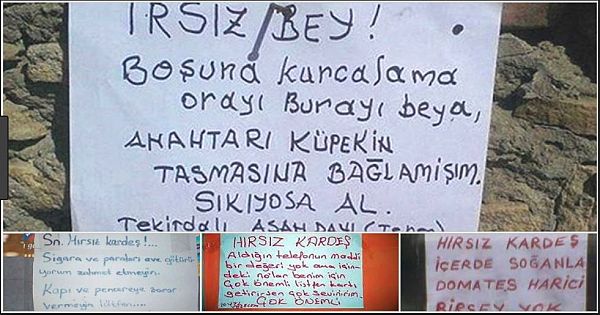 IRSIZ BEY!
Boşuna kurcalama
orayı Burayı beya,
ANAHTARI KÜPEKİN
TASMASINA BAĞLAMIŞIM.
SIKIYOSA AL.
Tekirdalı ASAN DAYI
Sn. Hırsız kardeş!...
Sigara ve paraları eve götürü-
yorum zahmet etmeyin.
Kapı ve pencereye zarar
vermeyin lütfen....
HIRSIZ KARDEŞ
Aldığın telefonun maddi
bir değeri yok ama için
deki nolar benim için
Çok önemli lütfen kartı
getirirsen çok sevinirim.
ÇOK ÖNEMLİ
HIRSIZ KARDEŞ
İÇERDE SOĞANLA
DOMATES HARİCİ
BİRŞEY YOK